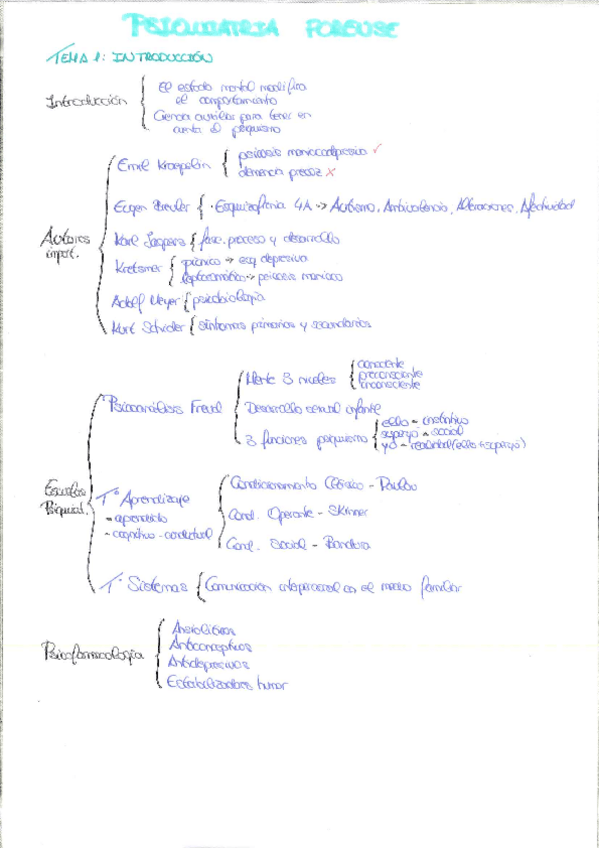 PSIQUIATRIA FORENSE
TEMA 1: INTRODUCCIÓN
Introducción
El estado mental modifica
el comportamiento
Ciencia auxiliar para tener en
cuenta el psiquismo
Autores
import.
Emil Kraepelin
psicosis maniacodepresiva ✓
demencia precoz ✗
Eugen Bleuler
· Esquizofrenia 4A → Autismo, Ambivalencia, Alteraciones, Afectividad
Karl Jaspers
fase, proceso y desarrollo
Kretsmer
pícnico → esq depresiva
leptosomático → psicosis maniaco
Adolf Meyer
psicobiología
Kurt Schider
síntomas primarios y secundarios
Escuelas
Psiquiat.
Psicoanálisis Freud
Mente 3 niveles
consciente
preconsciente
inconsciente
Desarrollo sexual infantil
3 funciones psiquismo
ello - instintivo
superyo - social
yo - realidad (ello + superyo)
Tª Aprendizaje
- aprendido
- cognitivo-conductual
Condicionamento Clásico - Paulov
Cond. Operante - Skinner
Cond. Social - Bandura
Tª Sistemas
Comunicación interpersonal en el medio familiar
Psicofarmacología
Ansiolíticos
Antidepresivos
Estabilizadores humor